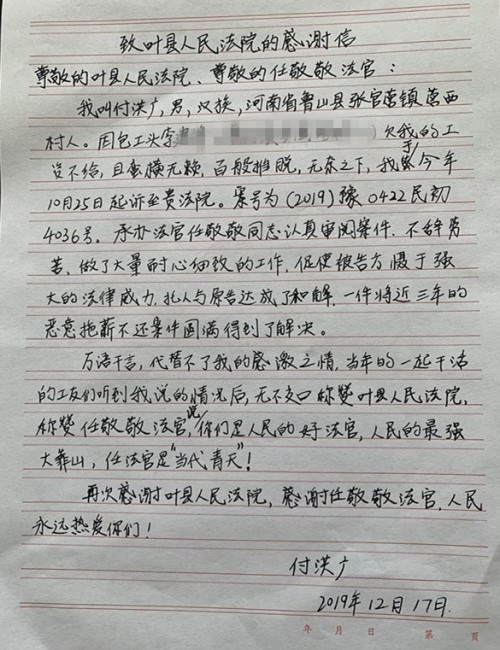 致叶县人民法院的感谢信
尊敬的叶县人民法院、尊敬的任敬敬法官:
我叫付洪广,男,汉族,河南省鲁山县张官营镇营西
村人。因包工头李 欠我的工
资不给,且蛮横无赖,百般推脱,无奈之下,我于今年
10月25日起诉至贵法院。案号为(2019)豫0422民初
4036号。承办法官任敬敬同志认真审阅案件,不辞劳
苦,做了大量耐心细致的工作,促使被告方慑于强
大的法律威力,托人与原告达成了和解,一件将近三年的
恶意拖薪不还案件圆满得到了解决。
万语千言,代替不了我的感激之情,当年的一起干活
的工友们听到我说的情况后,无不交口称赞叶县人民法院,
称赞任敬敬法官,说你们是人民的好法官,人民的最强
大靠山,任法官是"当代青天"!
再次感谢叶县人民法院,感谢任敬敬法官,人民
永远热爱你们!
付洪广
2019年12月17日.
年 月 日 第 页